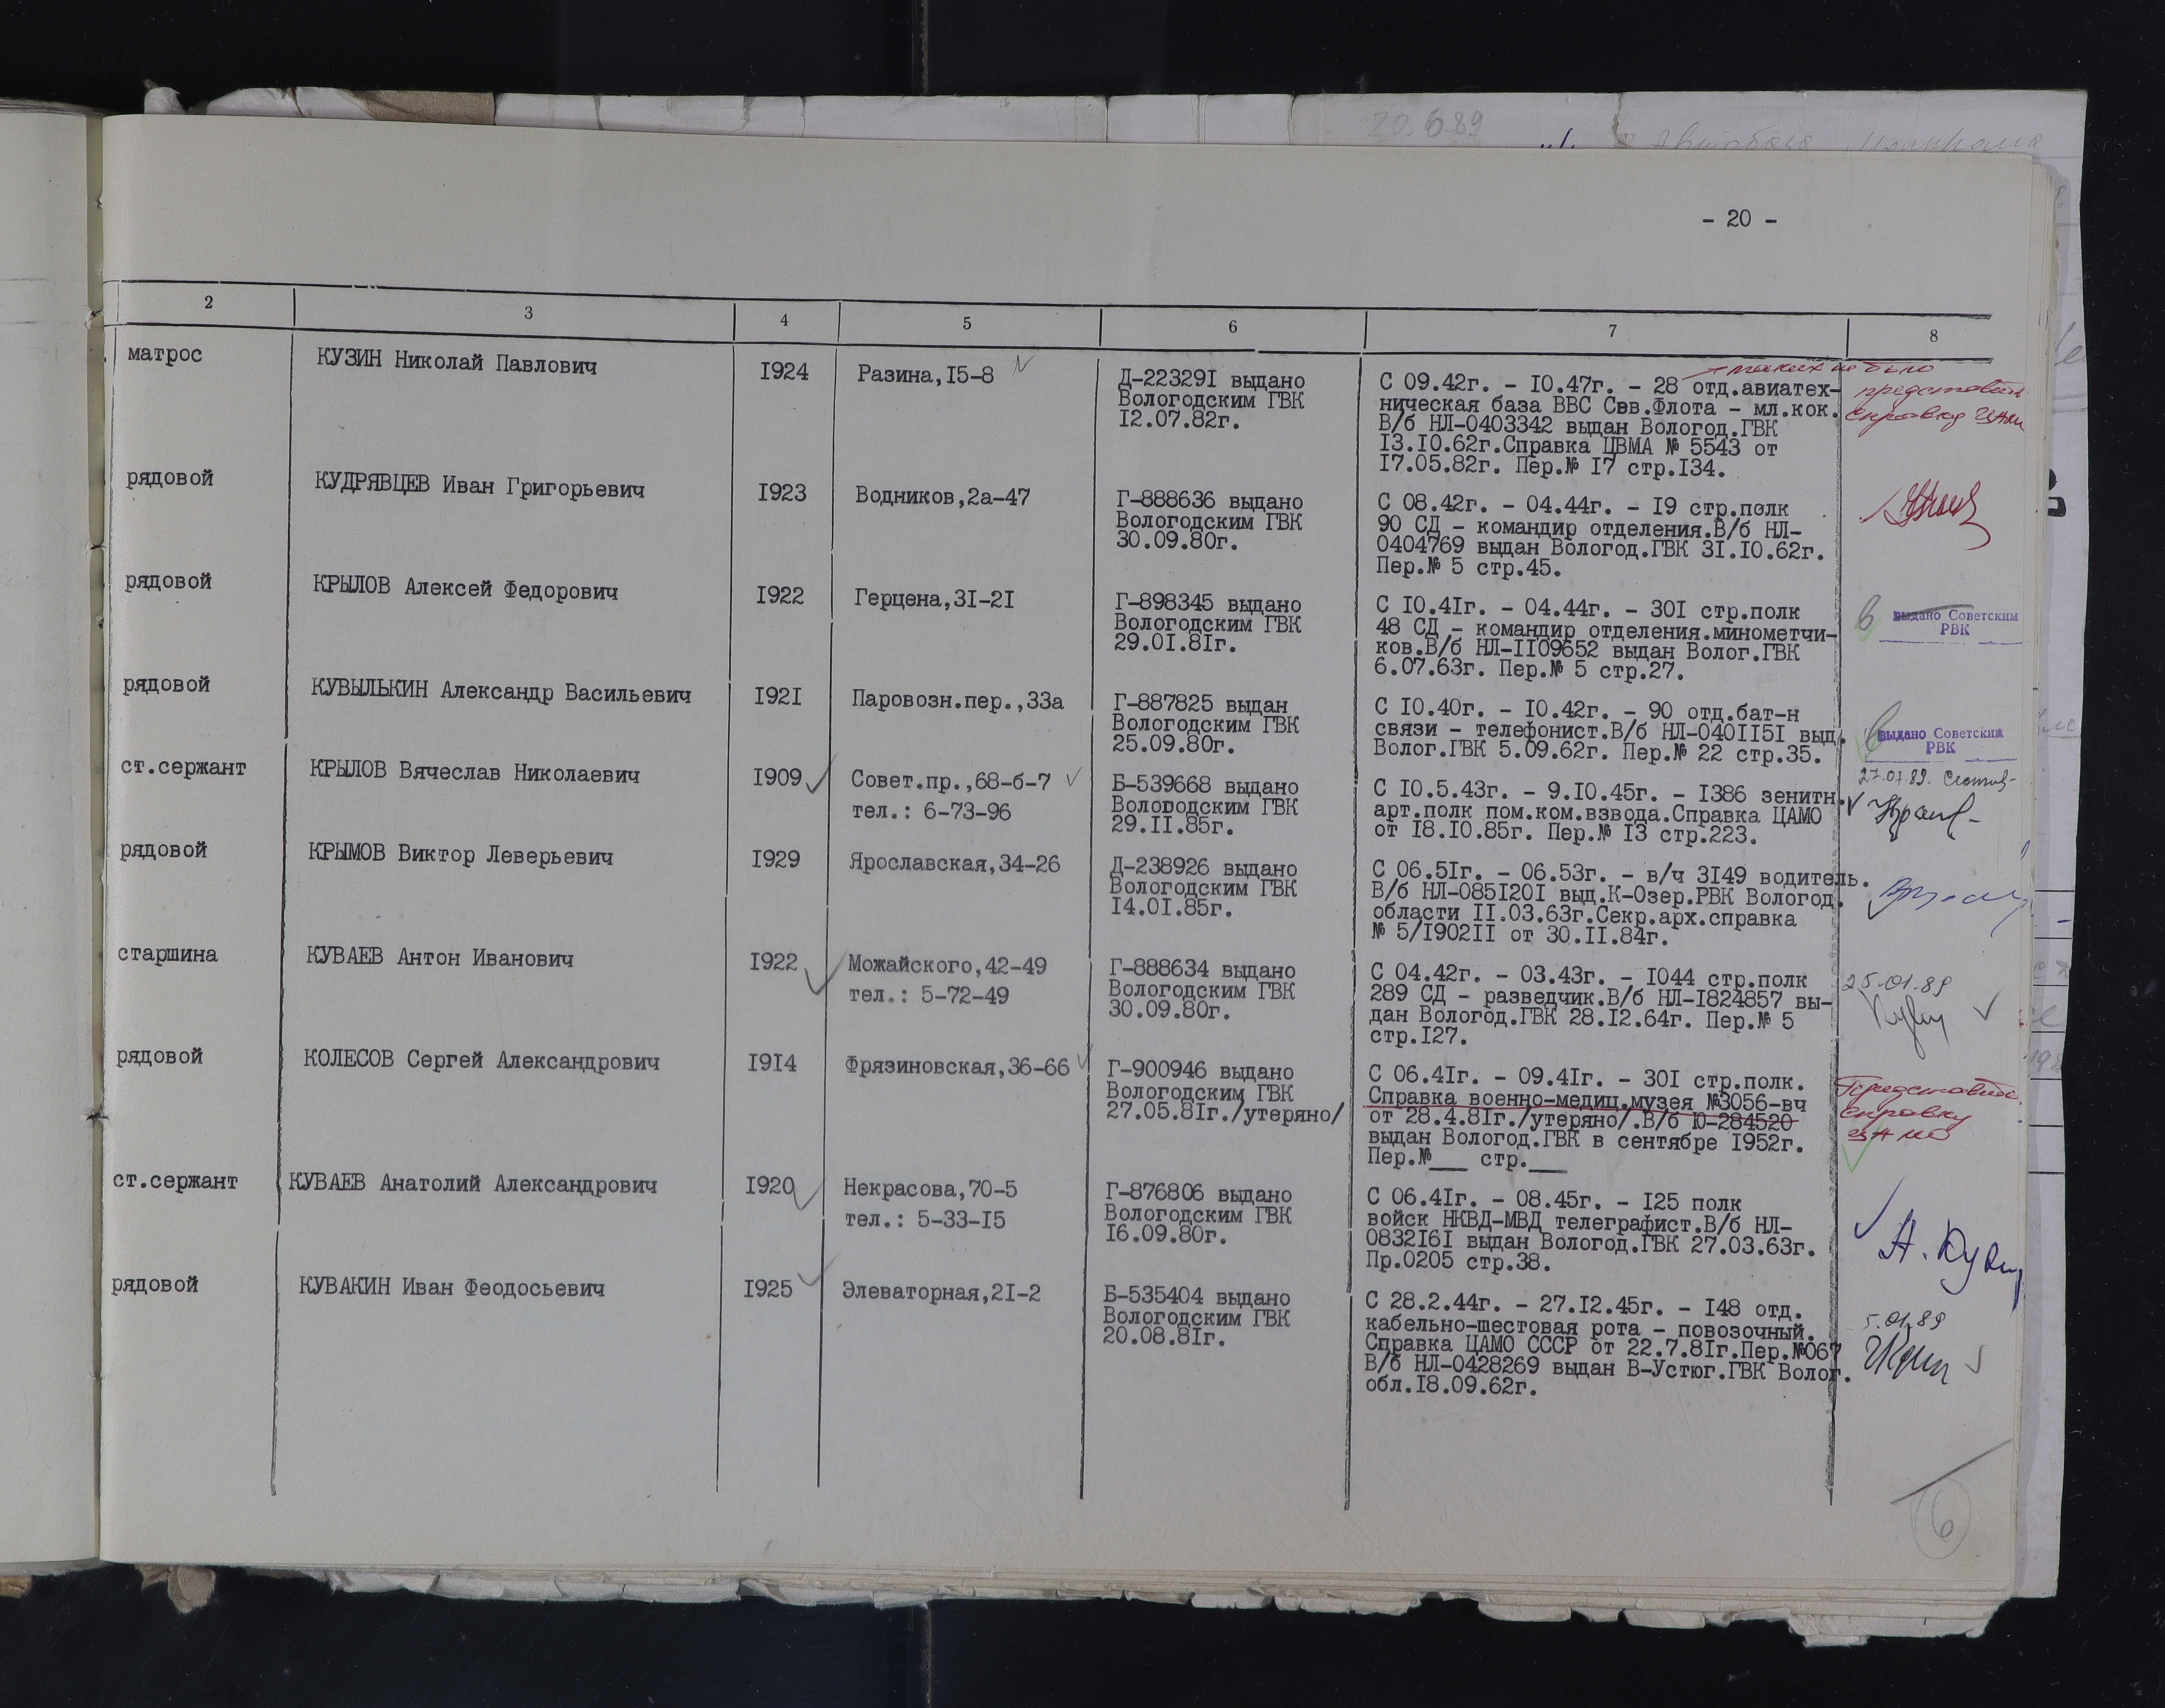 20.6.89
- 20 -
2 3 4 5 6 7 8
матрос КУЗИН Николай Павлович 1924 Разина,15-8
Д-223291 выдано
Вологодским ГВК
12.07.82г.
С 09.42г. - 10.47г. - 28 отд.авиатех-
ническая база ВВС Сев.Флота - мл.кок.
В/б НЛ-0403342 выдан Вологод.ГВК
13.10.62г.Справка ЦВМА № 5543 от
17.05.82г. Пер.№ 17 стр.134.
таких не было
представить
справку ЦАМО
рядовой КУДРЯВЦЕВ Иван Григорьевич 1923 Водников,2а-47
Г-888636 выдано
Вологодским ГВК
30.09.80г.
С 08.42г. - 04.44г. - 19 стр.полк
90 СД - командир отделения.В/б НЛ-
0404769 выдан Вологод.ГВК 31.10.62г.
Пер.№ 5 стр.45.
рядовой КРЫЛОВ Алексей Федорович 1922 Герцена,31-21
Г-898345 выдано
Вологодским ГВК
29.01.81г.
С 10.41г. - 04.44г. - 301 стр.полк
48 СД - командир отделения.минометчи-
ков.В/б НЛ-1109652 выдан Волог.ГВК
6.07.63г. Пер.№ 5 стр.27.
в выдано Советским
РВК
рядовой КУВЫЛЬКИН Александр Васильевич 1921 Паровозн.пер.,33а
Г-887825 выдан
Вологодским ГВК
25.09.80г.
С 10.40г. - 10.42г. - 90 отд.бат-н
связи - телефонист.В/б НЛ-0401151 выд.
Волог.ГВК 5.09.62г. Пер.№ 22 стр.35.
в выдано Советским
РВК
ст.сержант КРЫЛОВ Вячеслав Николаевич 1909 Совет.пр.,68-б-7
тел.: 6-73-96
Б-539668 выдано
Вологодским ГВК
29.11.85г.
С 10.5.43г. - 9.10.45г. - 1386 зенитн.
арт.полк пом.ком.взвода.Справка ЦАМО
от 18.10.85г. Пер.№ 13 стр.223.
27.01.89.
рядовой КРЫМОВ Виктор Леверьевич 1929 Ярославская,34-26
Д-238926 выдано
Вологодским ГВК
14.01.85г.
С 06.51г. - 06.53г. - в/ч 3149 водитель.
В/б НЛ-0851201 выд.К-Озер.РВК Вологод.
области 11.03.63г.Секр.арх.справка
№ 5/190211 от 30.11.84г.
старшина КУВАЕВ Антон Иванович 1922 Можайского,42-49
тел.: 5-72-49
Г-888634 выдано
Вологодским ГВК
30.09.80г.
С 04.42г. - 03.43г. - 1044 стр.полк
289 СД - разведчик.В/б НЛ-1824857 вы-
дан Вологод.ГВК 28.12.64г. Пер.№ 5
стр.127.
25.01.89
рядовой КОЛЕСОВ Сергей Александрович 1914 Фрязиновская,36-66
Г-900946 выдано
Вологодским ГВК
27.05.81г./утеряно/
С 06.41г. - 09.41г. - 301 стр.полк.
Справка военно-медиц.музея №3056-вч
от 28.4.81г./утеряно/.В/б Ю-284520
выдан Вологод.ГВК в сентябре 1952г.
Пер.№___ стр.___
Представить
справку
ЦАМО
ст.сержант КУВАЕВ Анатолий Александрович 1920 Некрасова,70-5
тел.: 5-33-15
Г-876806 выдано
Вологодским ГВК
16.09.80г.
С 06.41г. - 08.45г. - 125 полк
войск НКВД-МВД телеграфист.В/б НЛ-
0832161 выдан Вологод.ГВК 27.03.63г.
Пр.0205 стр.38.
рядовой КУВАКИН Иван Феодосьевич 1925 Элеваторная,21-2
Б-535404 выдано
Вологодским ГВК
20.08.81г.
С 28.2.44г. - 27.12.45г. - 148 отд.
кабельно-шестовая рота - повозочный.
Справка ЦАМО СССР от 22.7.81г.Пер.№067
В/б НЛ-0428269 выдан В-Устюг.ГВК Волог.
обл.18.09.62г.
5.01.89
6